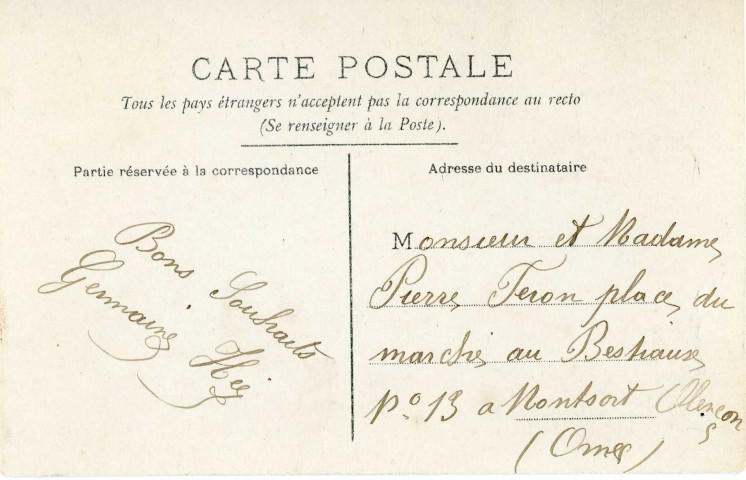 CARTE POSTALE
Tous les pays étrangers n'acceptent pas la correspondance au recto
(Se renseigner à la Poste).
Partie réservée à la correspondance
Bons Souhaits
Germaine
Adresse du destinataire
Monsieur et Madame
Pierre Feron place du
marché au Bestiaux
no 13 a Montsort Alençon
(Orne)